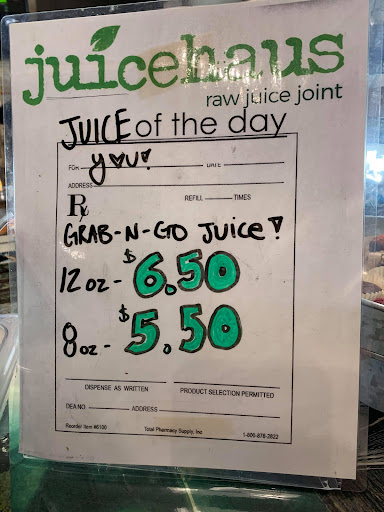 juicehaus
raw juice joint
JUICE of the day
FOR you! DATE
ADDRESS
Rx REFILL TIMES
GRAB-N-GO JUICE!
12 oz - $6.50
8 oz - $5.50
DISPENSE AS WRITTEN PRODUCT SELECTION PERMITTED
DEA NO. ADDRESS
Reorder Item #6100 Total Pharmacy Supply, Inc 1-800-878-2822